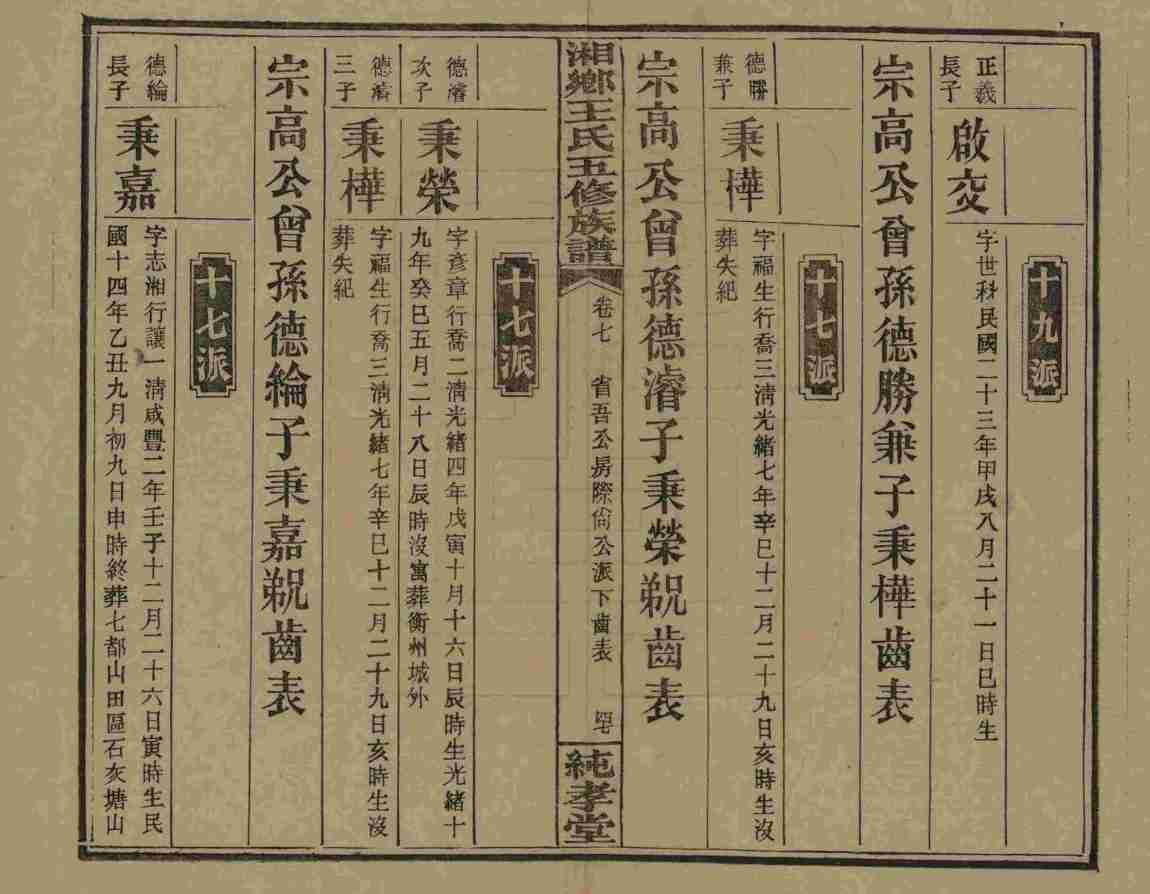 十九派
正義
長子
啟交
字世科民國二十三年甲戌八月二十一日巳時生
宗高公曾孫德勝兼子秉樺齒表
十七派
德勝
兼子
秉樺
字福生行喬三淸光緒七年辛巳十二月二十九日亥時生沒
葬失紀
宗高公曾孫德濬子秉榮覞齒表
湘鄉王氏五修族譜
卷七
省吾公房際尙公派下齒表
純孝堂
十七派
德濬
次子
秉榮
字彥章行喬二淸光緒四年戊寅十月十六日辰時生光緒十
九年癸巳五月二十八日辰時沒寓葬衡州城外
德濬
三子
秉樺
字福生行喬三淸光緒七年辛巳十二月二十九日亥時生沒
葬失紀
宗高公曾孫德綸子秉嘉覞齒表
十七派
德綸
長子
秉嘉
字志湘行讓一淸咸豐二年壬子十二月二十六日寅時生民
國十四年乙丑九月初九日申時終葬七都山田區石灰塘山